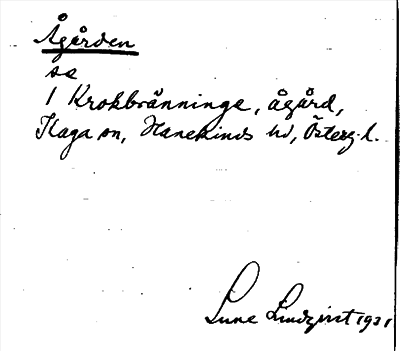 Ågården
se
1 Krokbränninge, ågård,
Kaga sn, Hanekinds hd, Österg. l.
Sune Lindqvist 1931